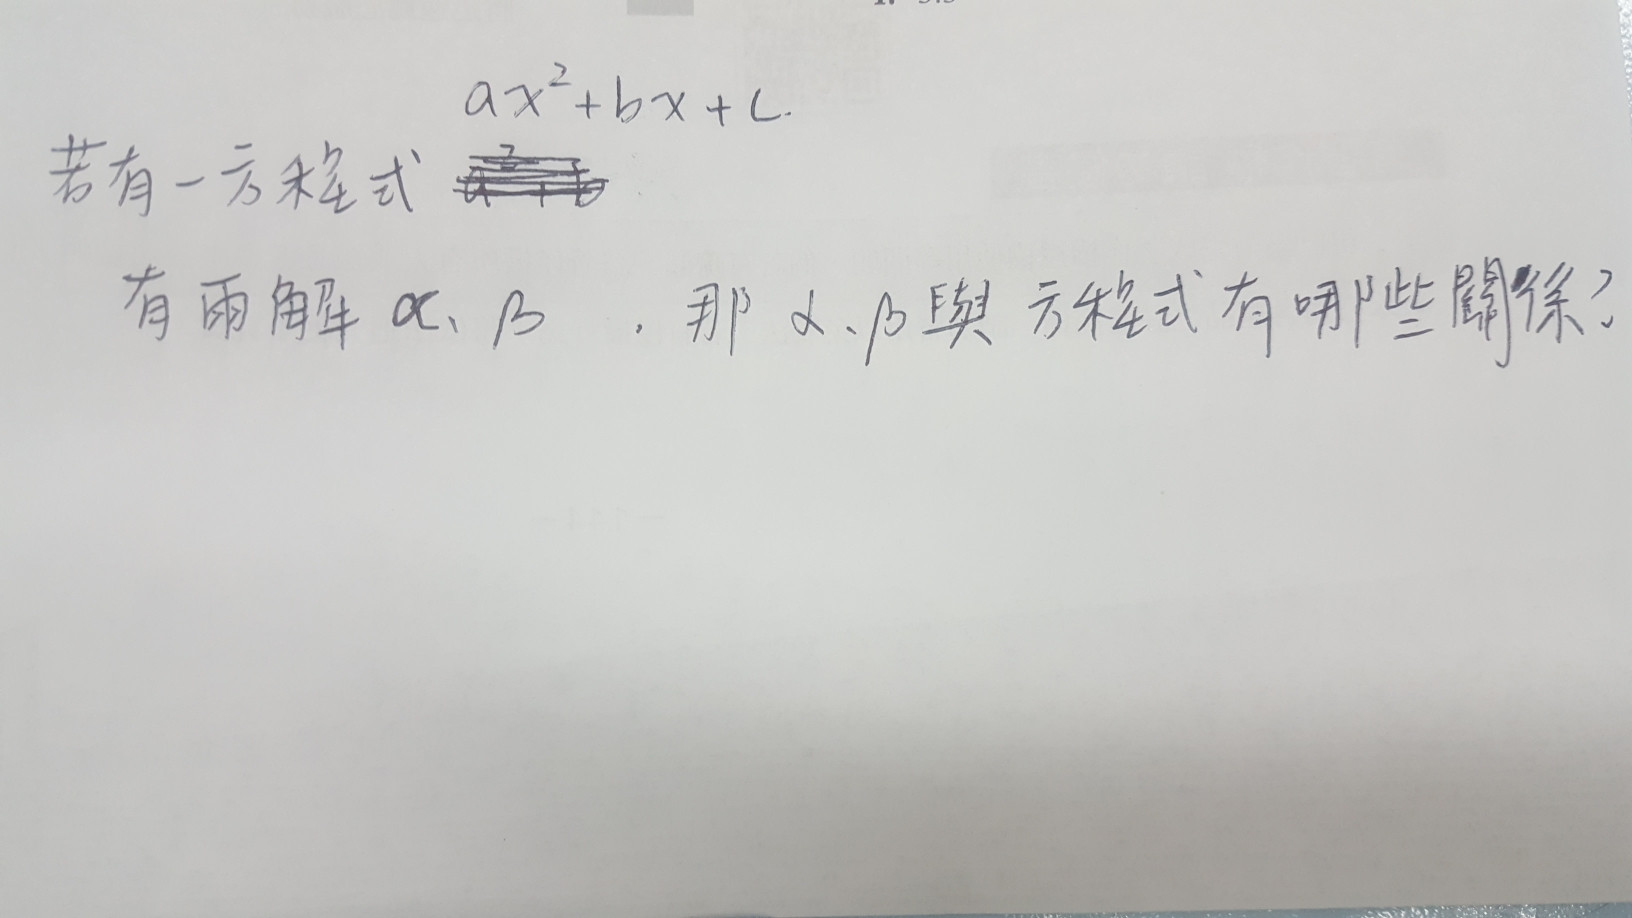 ax²+bx+c.
若有一方程式
有兩解 α、β , 那 α、β 與 方程式 有 哪些 關係?